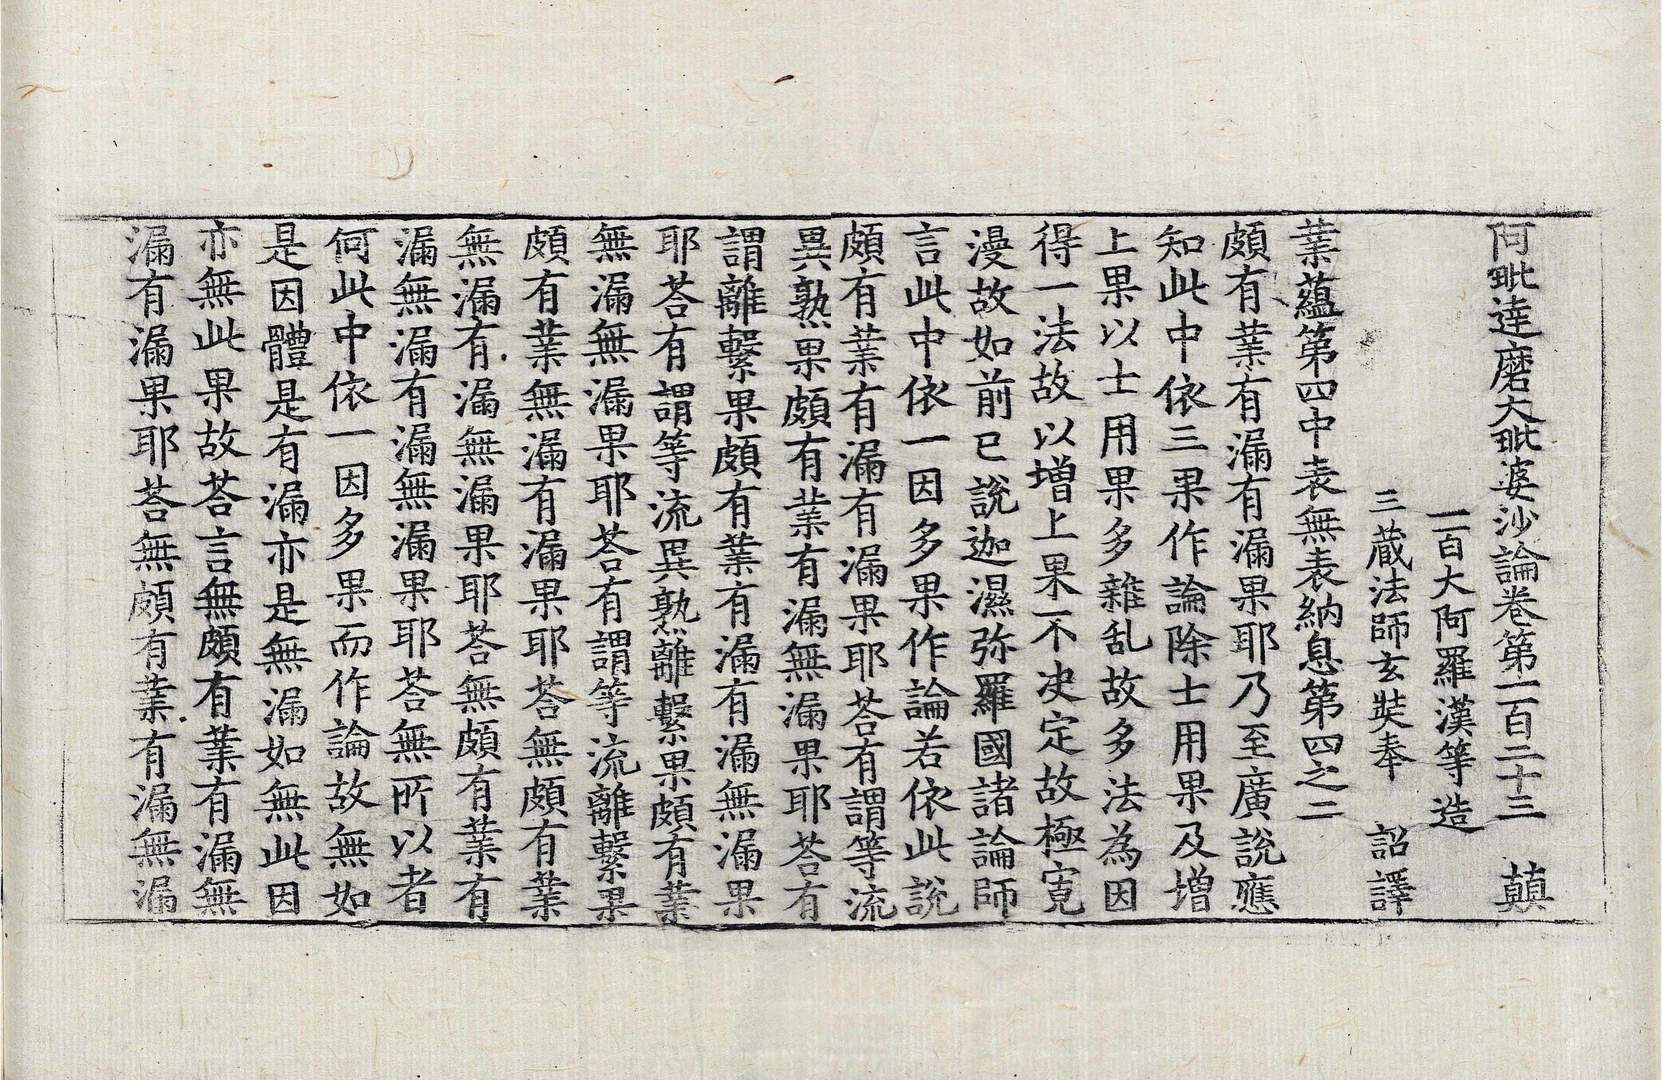 阿毗達磨大毗婆沙論卷第一百二十三 顛
五百大阿羅漢等造
三藏法師玄奘奉 詔譯
業蘊第四中表無表納息第四之二
頗有業有漏有漏果耶乃至廣說應
知此中依三果作論除士用果及增
上果以士用果多雜乱故多法為因
得一法故以增上果不决定故極寬
漫故如前已說迦濕弥羅國諸論師
言此中依一因多果作論若依此說
頗有業有漏有漏果耶荅有謂等流
異熟果頗有業有漏無漏果耶荅有
謂離繫果頗有業有漏有漏無漏果
耶荅有謂等流異熟離繫果頗有業
無漏無漏果耶荅有謂等流離繫果
頗有業無漏有漏果耶荅無頗有業
無漏有漏無漏果耶荅無頗有業有
漏無漏有漏無漏果耶荅無所以者
何此中依一因多果而作論故無如
是因體是有漏亦是無漏如無此因
亦無此果故荅言無頗有業有漏無
漏有漏果耶荅無頗有業有漏無漏